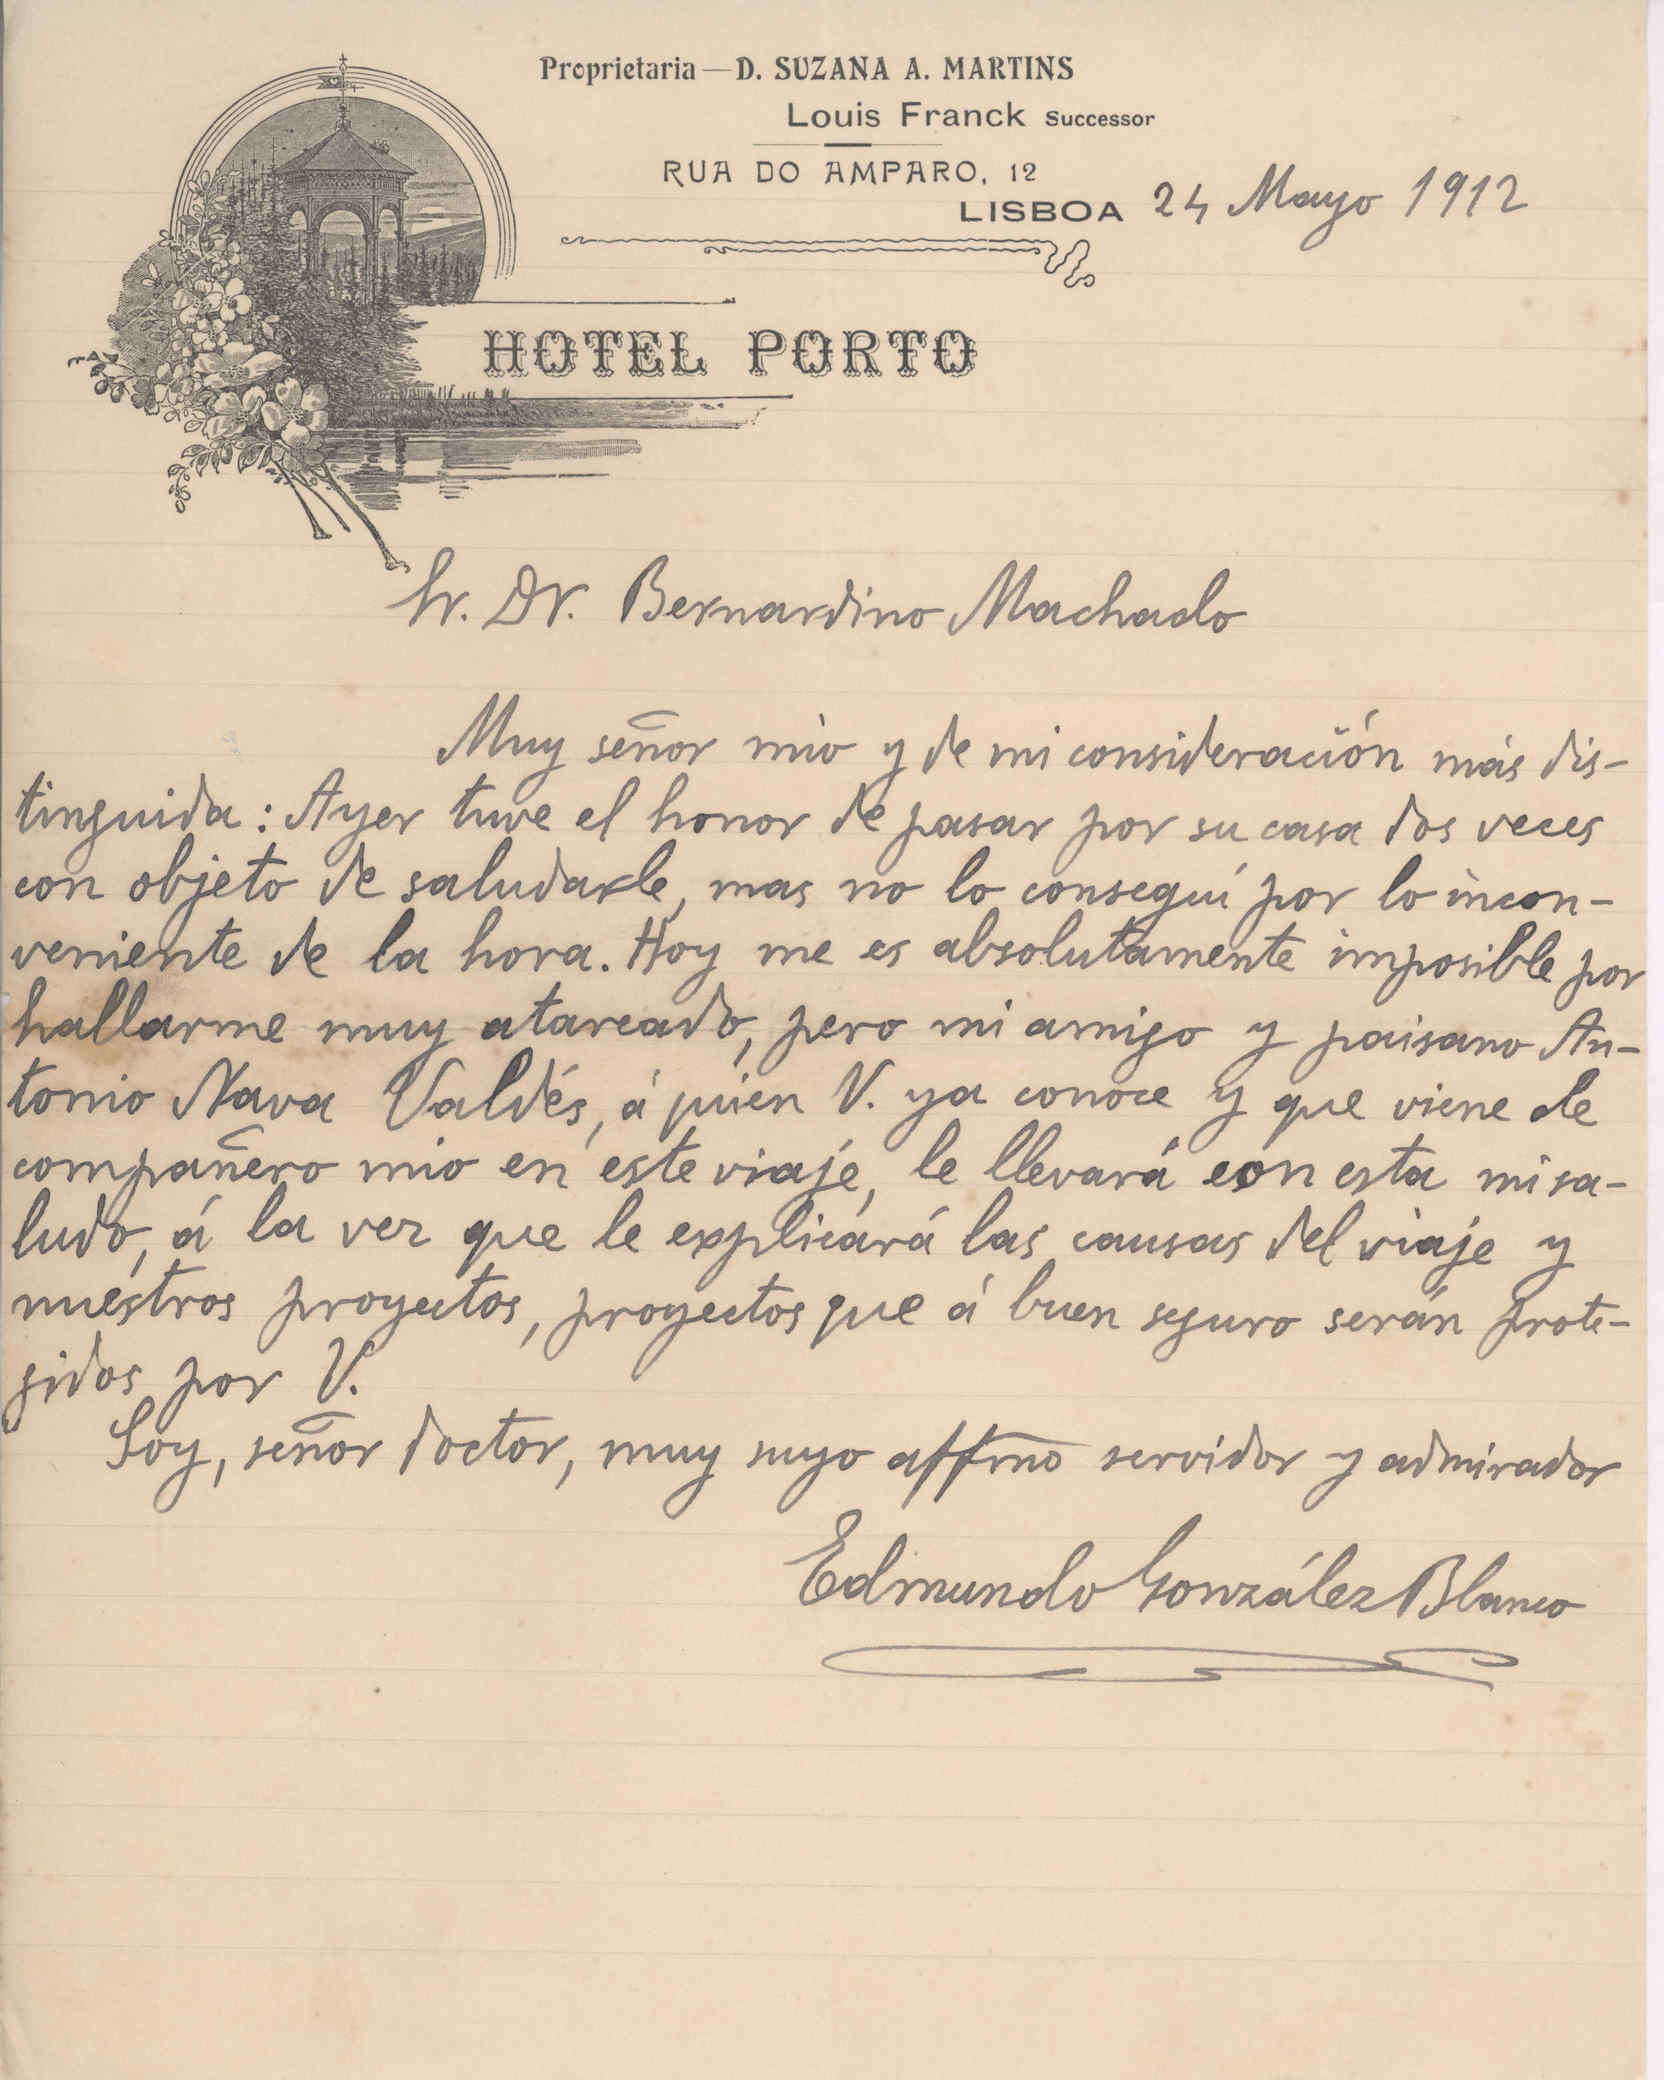 Proprietaria — D. SUZANA A. MARTINS
Louis Franck Successor
RUA DO AMPARO, 12
LISBOA 24 Mayo 1912
HOTEL PORTO
Sr. Dr. Bernardino Machado
Muy señor mio y de mi consideración más dis-
tinguida: Ayer tuve el honor de pasar por su casa dos veces
con objeto de saludarle, mas no lo conseguí por lo incon-
veniente de la hora. Hoy me es absolutamente imposible por
hallarme muy atareado, pero mi amigo y paisano An-
tonio Nava Valdés, á quien V. ya conoce y que viene de
compañero mio en este viaje, le llevará con esta mi sa-
ludo, á la vez que le explicará las causas del viaje y
nuestros proyectos, proyectos que á buen seguro serán prote-
gidos por V.
Soy, señor doctor, muy suyo affmo servidor y admirador
Edmundo González Blanco